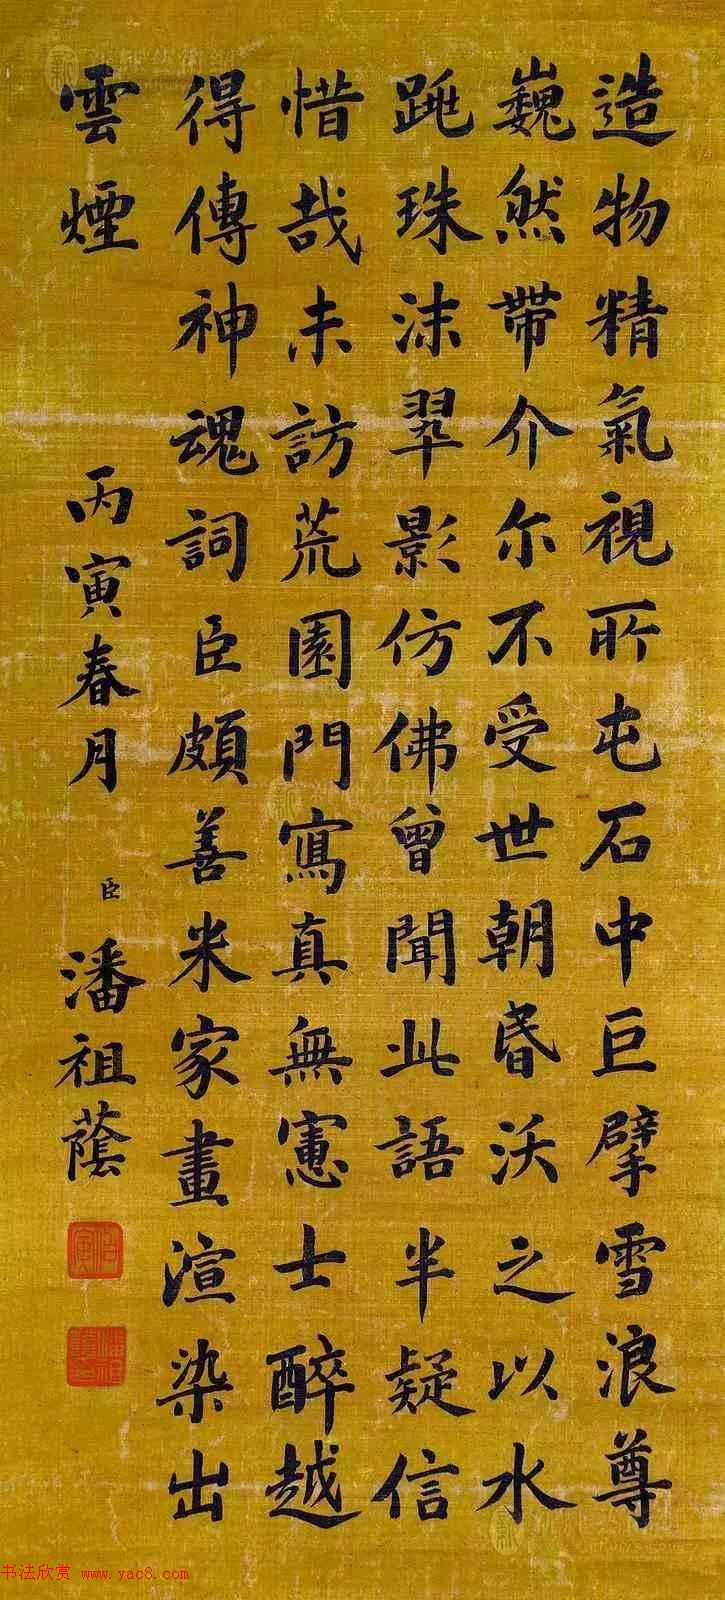 造物精氣視所屯石中巨擘雪浪尊
巍然帶介尔不受世朝昏沃之以水
跳珠沫翠影仿佛曾聞此語半疑信
惜哉未訪荒園門寫真無憲士醉越
得傳神魂詞臣頗善米家畫渲染出
雲煙
丙寅春月
臣潘祖蔭
书法欣赏 www.yac8.com